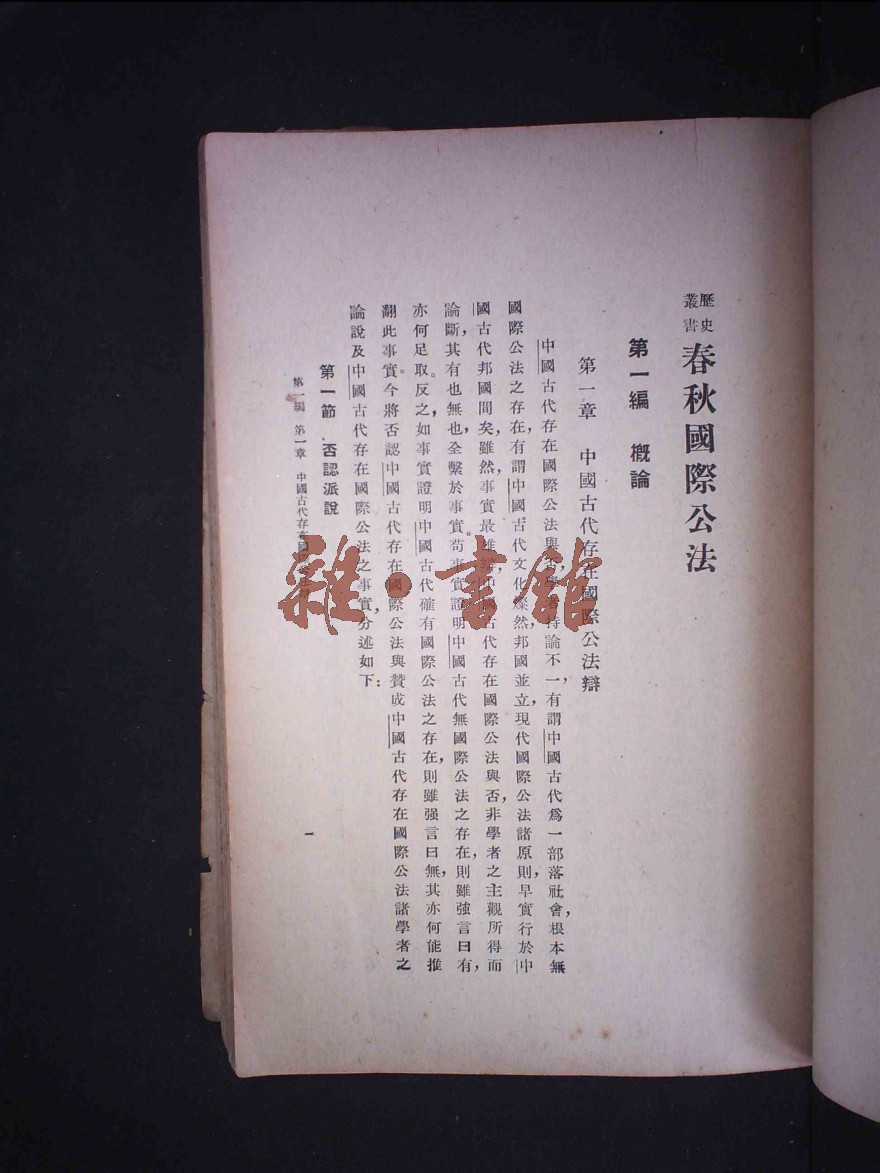 歷史叢書 春秋國際公法
第一編 概論
第一章 中國古代存在國際公法辯
中國古代存在國際公法與否，學者持論不一，有謂中國古代爲一部落社會，根本無
國際公法之存在，有謂中國古代文化燦然，邦國並立，現代國際公法諸原則，早實行於中
國古代邦國間矣，雖然，事實最雄辯，中國古代存在國際公法與否，非學者之主觀所得而
論斷，其有也無也，全繫於事實，苟事實證明中國古代無國際公法之存在，則雖強言曰有，
亦何足取。反之，如事實證明中國古代確有國際公法之存在，則雖强言曰無，其亦何能推
翻此事實。今將否認中國古代存在國際公法與贊成中國古代存在國際公法諸學者之
論說及中國古代存在國際公法之事實，分述如下：
第一節 否認派說
第一編 第一章 中國古代存在國際公法辯
一
雜·書館